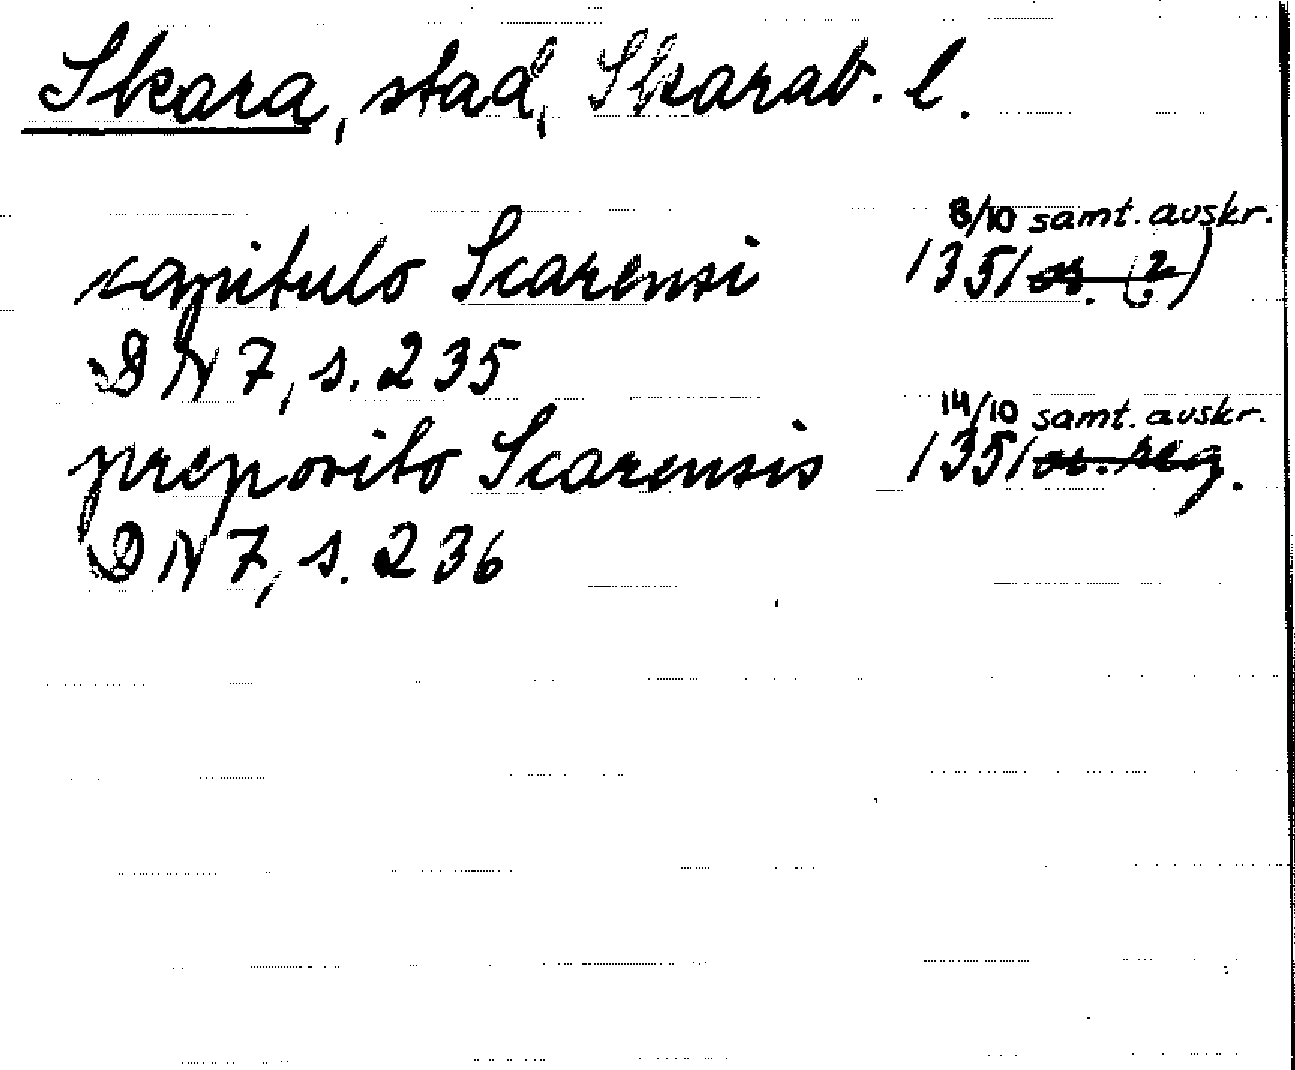 Skara, stad, Skarab. l.
8/10 samt. avskr.
capitulo Scarensi 1351 or. (?)
DN 7, s. 235
14/10 samt. avskr.
preposito Scarensis 1351 or. reg.
DN 7, s. 236